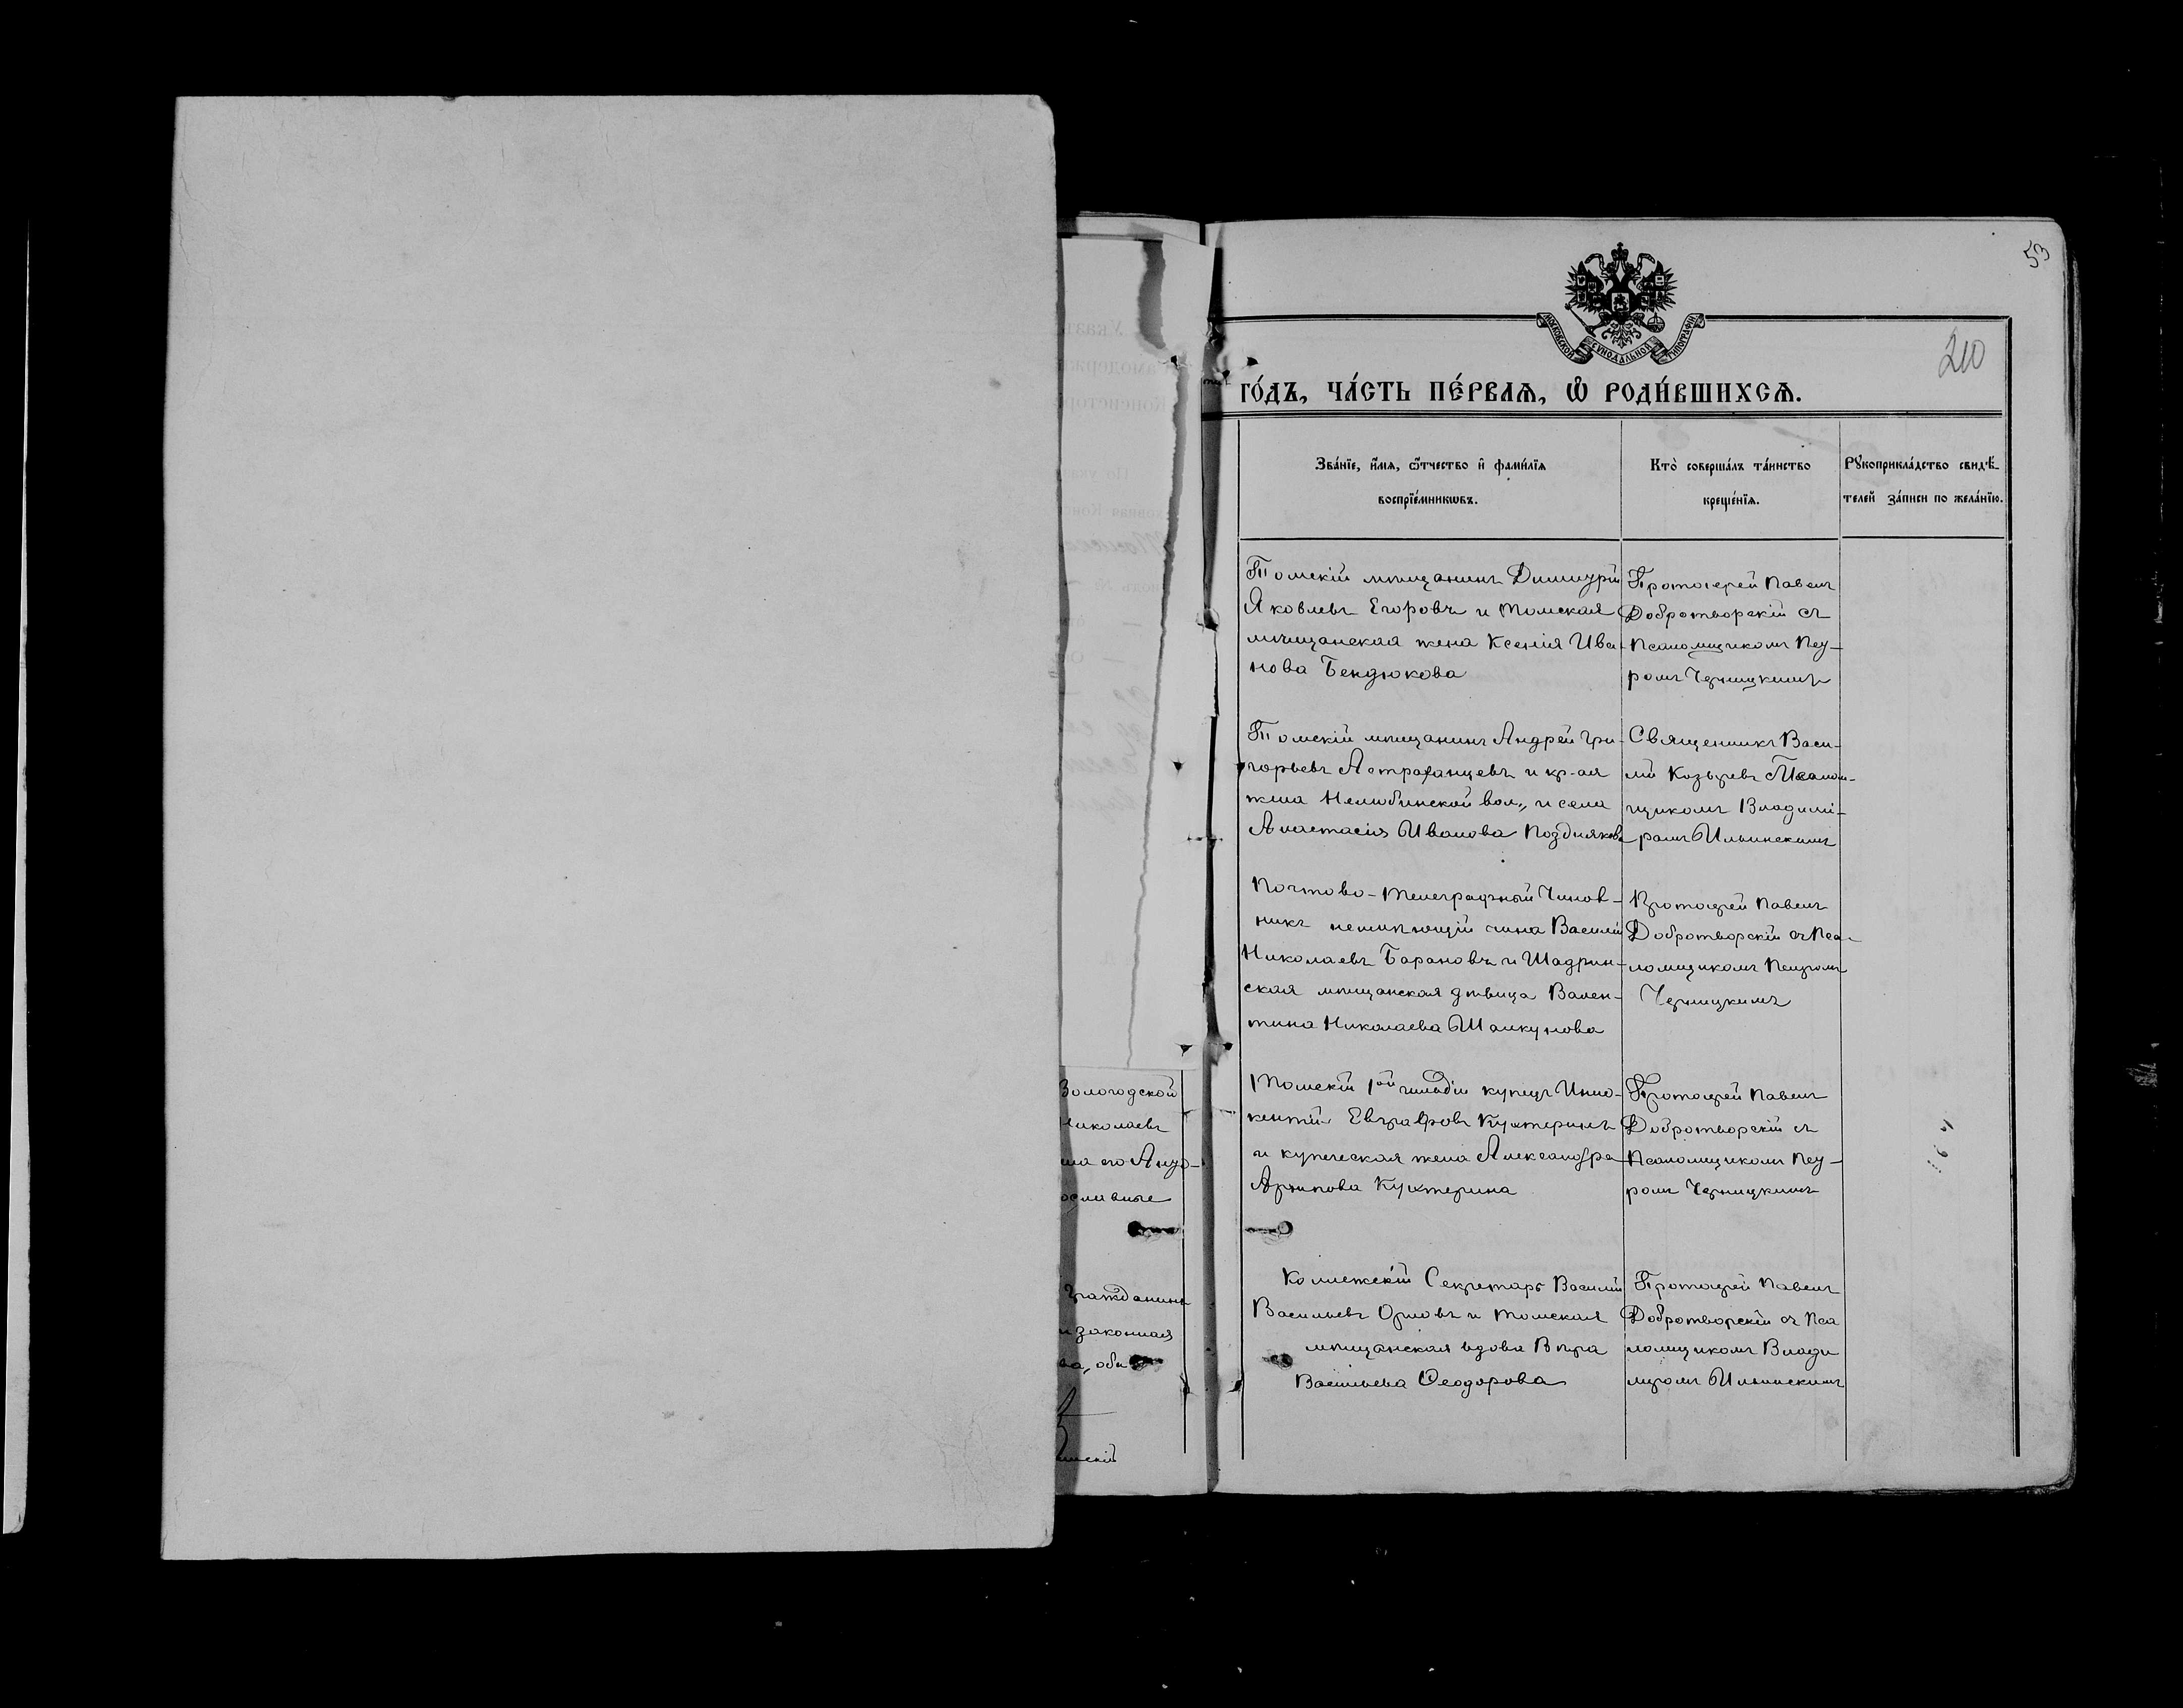 53
210
МОСКОВСКОЙ СѴНОДАЛЬНОЙ ТИПОГРАФІИ
го́дъ, ча́сть пе́рваѧ, ѡ҆ роди́вшихсѧ.
Зва́нїе, и҆́мѧ, ѻ҆́тчество и҆ фами́лїѧ
воспрїе́мникѡвъ.
Кто̀ соверша́лъ та́инство
креще́нїѧ.
Рꙋкоприкла́дство свидѣ́-
телей за́писи по жела́нїю.
Томскій мѣщанинъ Димитрій
Яковлевъ Егоровъ и томская
мѣщанская жена Ксенія Ива-
нова Бендюкова
Протоіерей Павелъ
Добротворскій съ
Псаломщикомъ Пет-
ромъ Черницкимъ
Томскій мѣщанинъ Андрей Гри-
горьевъ Астраханцевъ и кр-ая
жена Нелюбинской вол., и села
Анастасія Иванова Позднякова
Священникъ Васи-
лій Псалом-
щикомъ Владимі-
ромъ Ильинскимъ
Почтово-телеграфный Чинов-
никъ неимѣющій чина Василій
Николаевъ Барановъ и Шадрин-
ская мѣщанская дѣвица Вален-
тина Николаева Шамкунова
Протоіерей Павелъ
Добротворскій съ Пса-
ломщикомъ Петромъ
Черницкимъ
Томскій 1ой гильдіи купецъ Инно-
кентій Евграфовъ Кухтеринъ
и купеческая жена Александра
Архипова Кухтерина
Протоіерей Павелъ
Добротворскій съ
Псаломщикомъ Пет-
ромъ Черницкимъ
Коллежскій Секретарь Василій
Васильевъ Орловъ и томская
мѣщанская вдова Вѣра
Васильева Ѳеодорова
Протоіерей Павелъ
Добротворскій съ Пса
ломщикомъ Влади
міромъ Ильинскимъ
Вологодской
Николаевъ
его
ославные
Гражданинъ
и законная
ва, оба